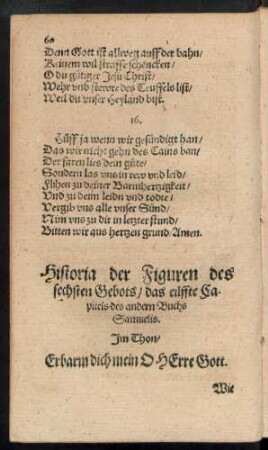 60
Denn Gott ist allweg auff der bahn/
Keinem wil straffe schencken/
O du gütiger Jesu Christ/
Wehr vnd stewre des Teuffels list/
Weil du vnser Heyland bist.
16.
Hülff ja wenn wir gesündigt han/
Das wir nicht gehn des Cains ban/
Der faren lies dein güte/
Sondern las vns in rew vnd leid/
Flihen zu deiner Barmhertzigkeit/
Vnd zu deim leidn vnd todte/
Vergib vns alle vnser Sünd/
Nim vns zu dir in letzter stund/
Bitten wir aus hertzen grund/ Amen.
Historia der Figuren des
sechsten Gebots/ das eilffte Ca-
pitels des andern Buchs
Samuelis.
Im Thon/
Erbarm dich mein O HErre Gott.
Wie